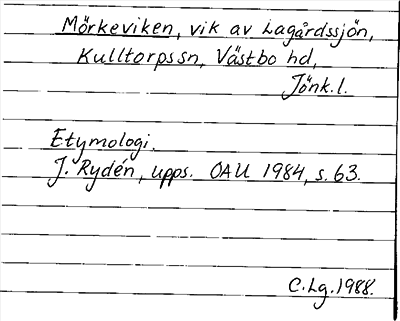 Mörkeviken, vik av Lagårdssjön,
Kulltorps sn, Västbo hd,
Jönk.l.
Etymologi.
J. Rydén, upps. OAU 1984, s. 63.
C.Lg.1988.